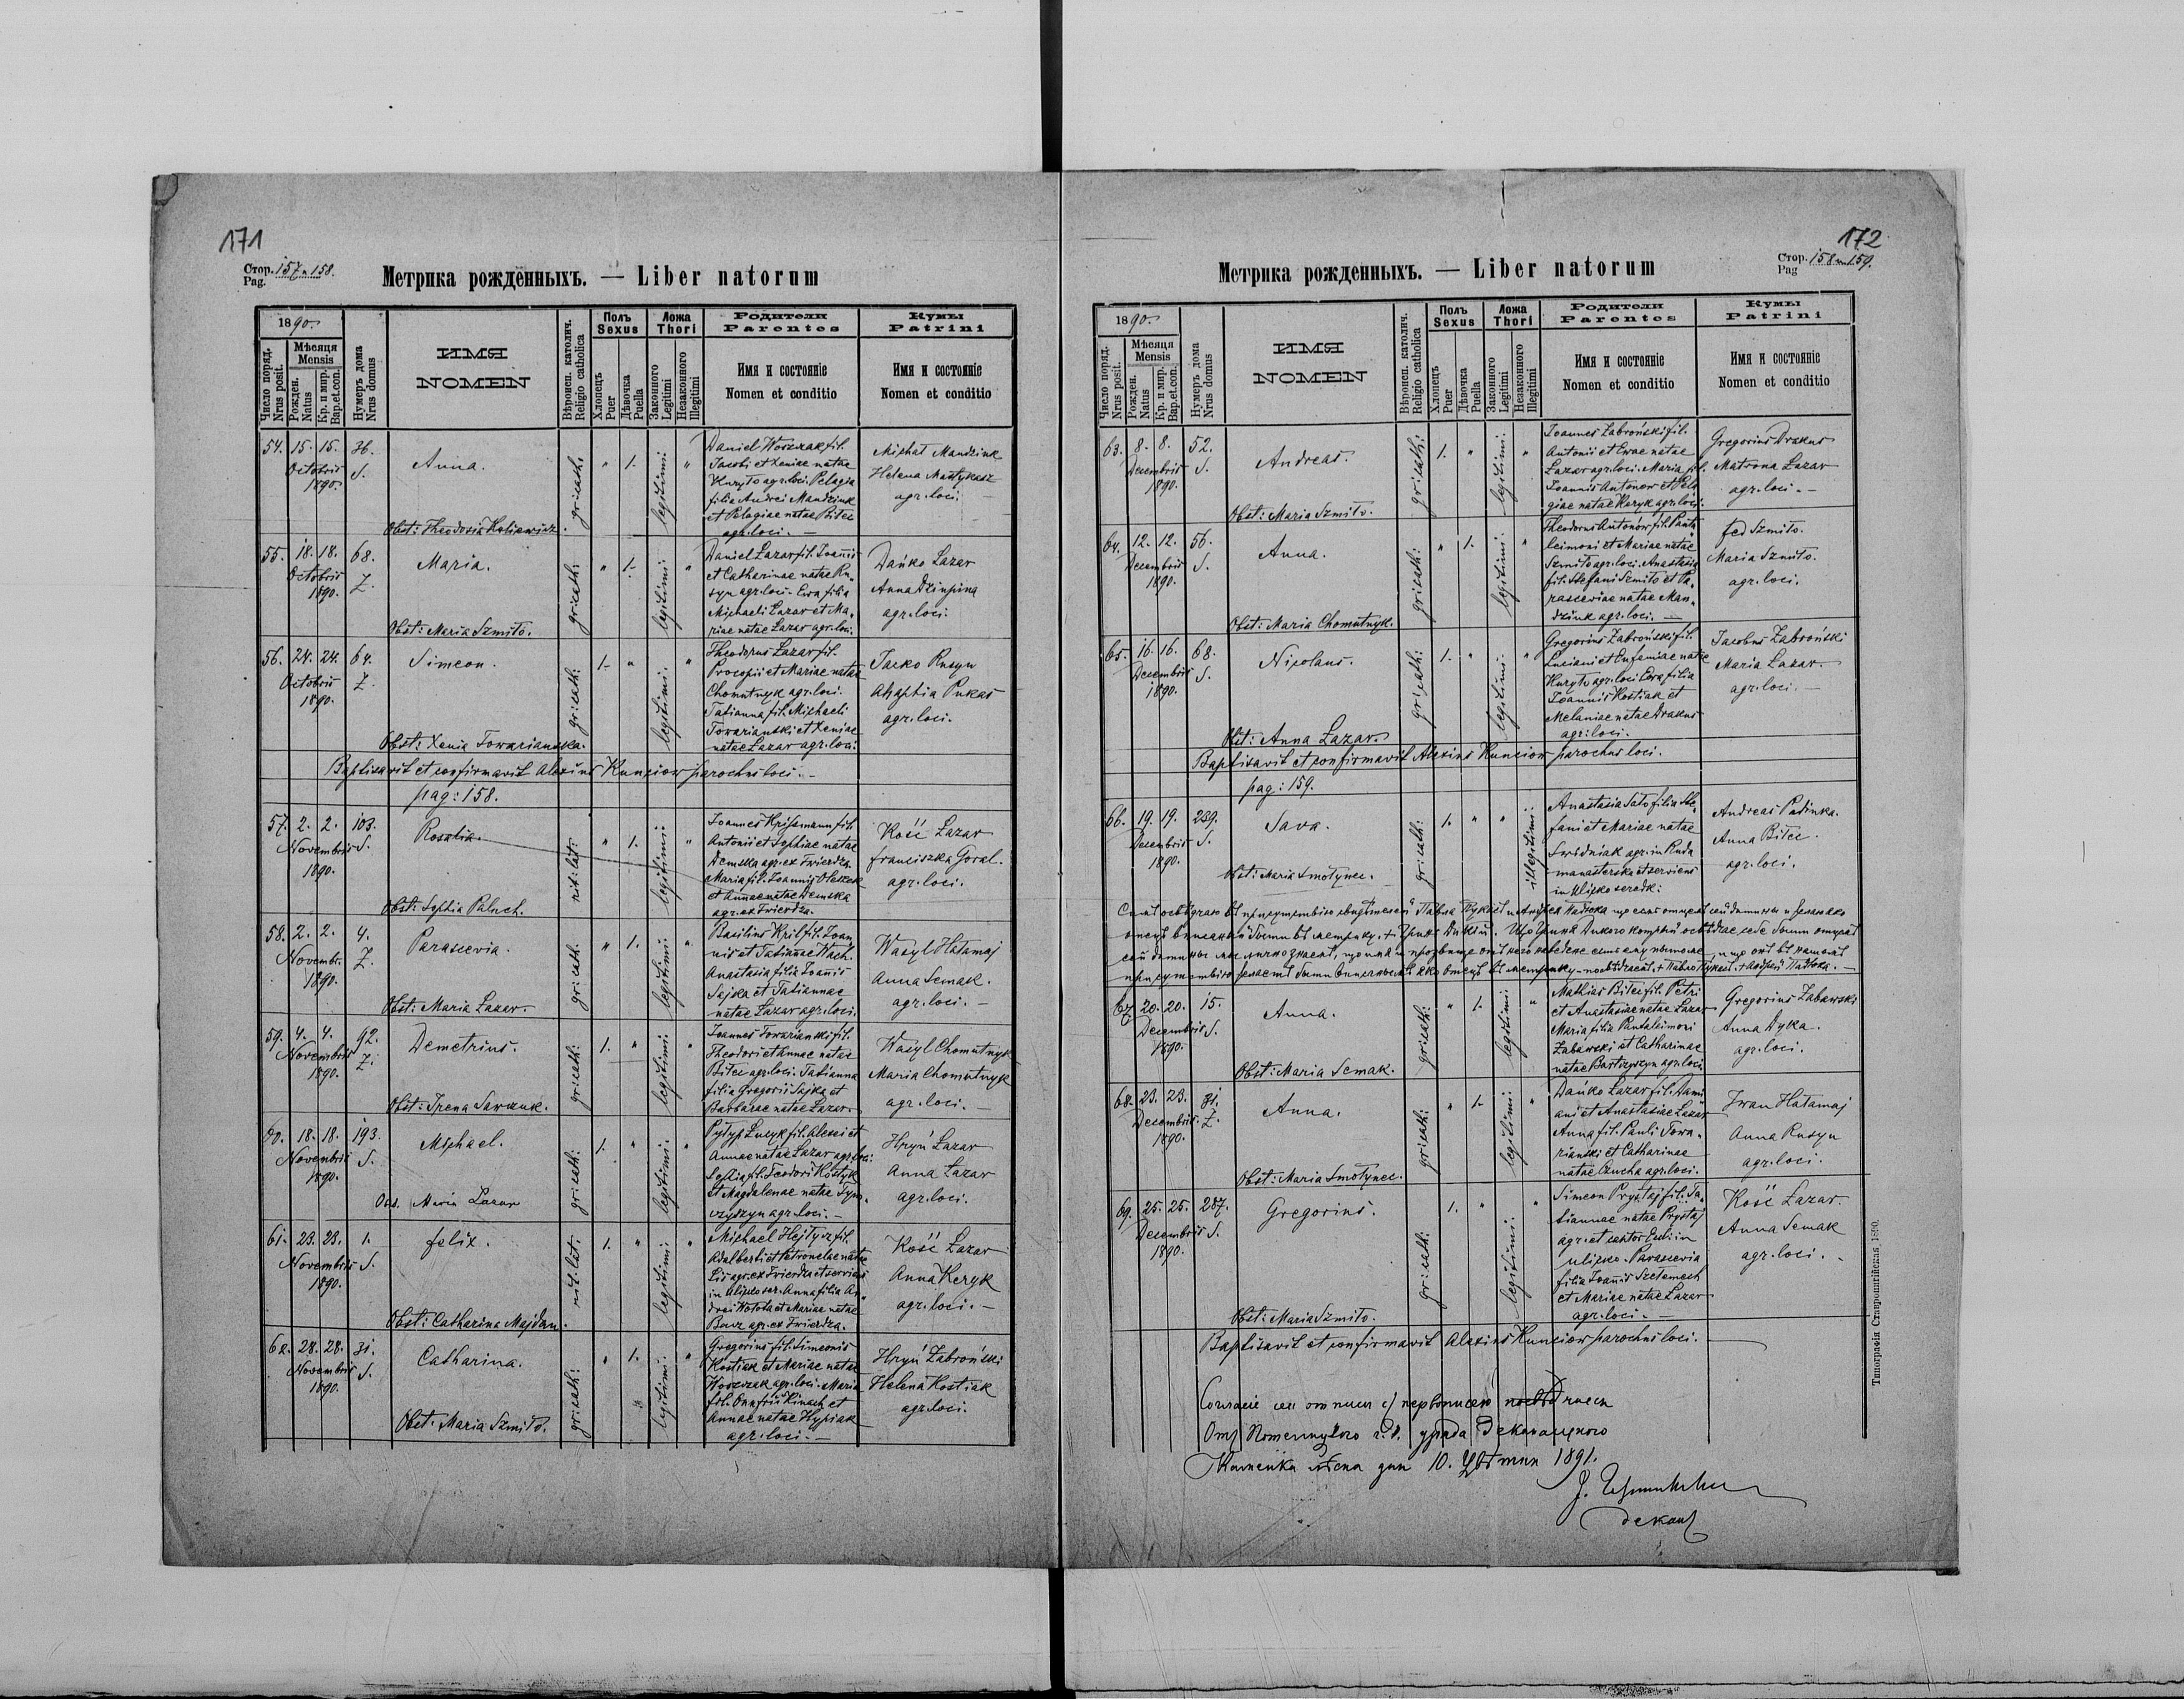 171
Стор. 157 и 158.
Pag.
Метрика рожденныхъ. — Liber natorum
1890.
Число поряд.
Nrus posit.
Мѣсяця
Mensis
Рожден.
Natus
Кр. и мир.
Bap.et.con.
Нумеръ дома
Nrus domus
ИМЯ
NOMEN
Вѣроисп. католич.
Religio catholica
Полъ
Sexus
Хлопецъ
Puer
Дѣвочка
Puella
Ложа
Thori
Законного
Legitimi
Незаконного
Illegitimi
Родители
Parentes
Имя и состояніе
Nomen et conditio
Кумы
Patrini
Имя и состояніе
Nomen et conditio
54. 15. 15. 36.
Octobris S.
1890.
Anna.
Obst: Theodosia Kuliewicz.
gr: cath:
" 1.
legitimi:
"
Daniel Woszczak fil.
Jacobi et Xeniae natae
Kuryto agr. loci. Pelagia
filia Andrei Mandziuk
et Pelagiae natae Bitec
agr. loci. —
Michał Mandziuk
Helena Mastykasz
agr. loci. —
55. 18. 18. 68.
Octobris Z.
1890.
Maria.
Obst: Maria Szmiło.
gr: cath:
" 1.
legitimi:
"
Daniel Lazar fil. Joannis
et Catharinae natae Ru„
syn agr. loci. Ewa filia
Michaeli Lazar et Ma„
riae natae Lazar agr. loci.
Dańko Lazar
Anna
agr. loci.
56. 24. 24. 64.
Octobris Z.
1890.
Simeon.
Obst: Xenia Towarianska.
gr: cath:
1. "
legitimi:
"
Theodorus Lazar fil.
Procopii et Mariae natae
Chomutnyk agr. loci.
Tatianna fil. Michaeli
Towarianski et Xeniae
natae Lazar agr. loci.
Jacko Rusyn
Ahaphia Pukas
agr. loci.
Baptisavit et confirmavit Alexius Kunciow parochus loci. —
pag: 158.
57. 2. 2. 103.
Novembris S.
1890.
Rosalia.
Obst: Sophia Paluch.
rit: lat:
" 1.
legitimi:
"
Joannes Krissmann fil.
Antonii et Sophiae natae
Demska agr. ex Twierdza.
Maria fil. Joannis Oleszek
et Annae natae Demska
agr. ex Twierdza.
Kość Lazar
Franciszka Goral.
agr. loci.
58. 2. 2. 4.
Novembr. Z.
1890.
Parascevia.
Obst: Maria Lazar.
gr: cath.
" 1.
legitimi:
"
Basilius Kril fil. Joan
nis et Tatiannae Wach.
Anastasia filia Joannis
Sajka et Tatiannae
natae Lazar agr. loci.
Wasyl Hałamaj
Anna Semak.
agr. loci. —
59. 4. 4. 92.
Novembris Z.
1890.
Demetrius.
Obst: Irena Sawczuk.
gr: cath:
1. "
legitimi:
"
Joannes Towarianski fil.
Theodori et Annae natae
Bitec agr. loci. Tatianna
filia Gregorii Sajka et
Barbarae natae Lazar.
Wasyl Chomutnyk
Maria Chomutnyk
agr. loci.
60. 18. 18. 193.
Novembris S.
1890.
Michael.
Obs. Maria Lazar
gr: cath:
1. "
legitimi:
"
Pylyp Lucyk fil. Alexei et
Annae natae Lazar agr. loci:
Sophia fil. Teodori Kostyk
et Magdalenae natae
agr. loci. —
Hryń Lazar
Anna Lazar
agr. loci.
61. 23. 23. 1.
Novembris S.
1890.
Felix.
Obst: Catharina Majdan.
rit: lat:
1. "
legitimi:
"
Michael Hejtycz fil.
Adalberti et Petronelae natae
Lis agr. ex Twierdza et serviens
in Ulicko ser. Anna filia An„
drei Wołoła et Mariae natae
Bawz agr. ex Twierdza.
Kość Lazar
Anna Keryk
agr. loci. —
62. 28. 28. 31.
Novembris S.
1890.
Catharina.
Obst: Maria Szmiło.
gr: cath:
" 1.
legitimi:
"
Gregorius fil. Simeonis
Kostiak et Mariae natae
Woszczak agr. loci. Maria
fil. Onufrii Kinach et
Annae natae Hyriak
agr. loci. —
Hryń Zabroński
Helena Kostiak
agr. loci.
172
Стор. 158 и 159.
Pag
Метрика рожденныхъ. — Liber natorum
1890.
Число поряд.
Nrus posit.
Мѣсяця
Mensis
Рожден.
Natus
Кр. и мир.
Bap.et.con.
Нумеръ дома
Nrus domus
ИМЯ
NOMEN
Вѣроисп. католич.
Religio catholica
Полъ
Sexus
Хлопецъ
Puer
Дѣвочка
Puella
Ложа
Thori
Законного
Legitimi
Незаконного
Illegitimi
Родители
Parentes
Имя и состояніе
Nomen et conditio
Кумы
Patrini
Имя и состояніе
Nomen et conditio
63. 8. 8. 52.
Decembris S.
1890.
Andreas.
Obst: Maria Szmiło.
gr: cath:
1. "
legitimi:
"
Joannes Zabroński fil.
Antonii et Ewae natae
Lazar agr. loci. Maria fil.
Joannis Antonow et Pela
giae natae Keryk agr. loci.
Gregorius Drakus
Matrona Lazar
agr. loci. —
64. 12. 12. 56.
Decembris S.
1890.
Anna.
Obst: Maria Chomutnyk.
gr: cath:
" 1.
legitimi:
"
Theodorus Antonow fil. Panta
leimoni et Mariae natae
Szmiło agr. loci. Anastasia
fil. Stefani Szmiło et Pa„
rasceviae natae Man„
dziuk agr. loci. —
Fed Szmiło.
Maria Szmiło.
agr. loci.
65. 16. 16. 68.
Decembris S.
1890.
Nicolaus.
Obst: Anna Lazar.
gr: cath:
1. "
legitimi:
"
Gregorius Zabroński fil.
Luciani et Eufemiae natae
Kuryło agr. loci. Ewa filia
Joannis Kostiak et
Melaniae natae Drakus
agr. loci.
Jacobus Zabroński
Maria Lazar.
agr. loci. —
Baptisavit et confirmavit Alexius Kunciow parochus loci.
pag: 159.
66. 19. 19. 239.
Decembris S.
1890.
Sava.
Obst: Maria Smołynec.
gr: cath:
1. " "
illegitimi:
Anastasia Sato filia Ste„
fani et Mariae natae
Swidniak agr. in Ruda
manasterska et serviens
in Ulicko seredk:
Andreas Padinka.
Anna Bitec
agr. loci.
67. 20. 20. 15.
Decembris S.
1890.
Anna.
Obst: Maria Semak.
gr: cath:
" 1.
legitimi:
"
Mathias Bitec fil. Petri
et Anastasiae natae Lazar
Maria filia Pantaleimoni
Zabawski et Catharinae
natae Bartczyszyn agr. loci.
Gregorius Zabawski
Anna Dyka.
agr. loci.
68. 23. 23. 81.
Decembris Z.
1890.
Anna.
Obst: Maria Smołynec.
gr: cath:
" 1.
legitimi:
"
Dańko Lazar fil. Dami
ani et Anastasiae Lazar
Anna fil. Pauli Towa„
rianski et Catharinae
natae Czucha agr. loci.
Iwan Hałamaj
Anna Rusyn
agr. loci.
69. 25. 25. 287.
Decembris S.
1890.
Gregorius.
Obst: Maria Szmiło.
gr: cath:
1. "
legitimi:
"
Simeon Prystaj fil. Ta„
tiannae natae Prystaj
agr. et cantor Eccl: in
Ulicko. Parascevia
filia Joannis Szelemech
et Mariae natae Lazar
agr. loci. —
Kość Lazar.
Anna Semak
agr. loci. —
Baptisavit et confirmavit Alexius Kunciow parochus loci.
Каменка дня 10. Цвѣтня 1891.
деканъ
Типографія Ставропигійская 1890.